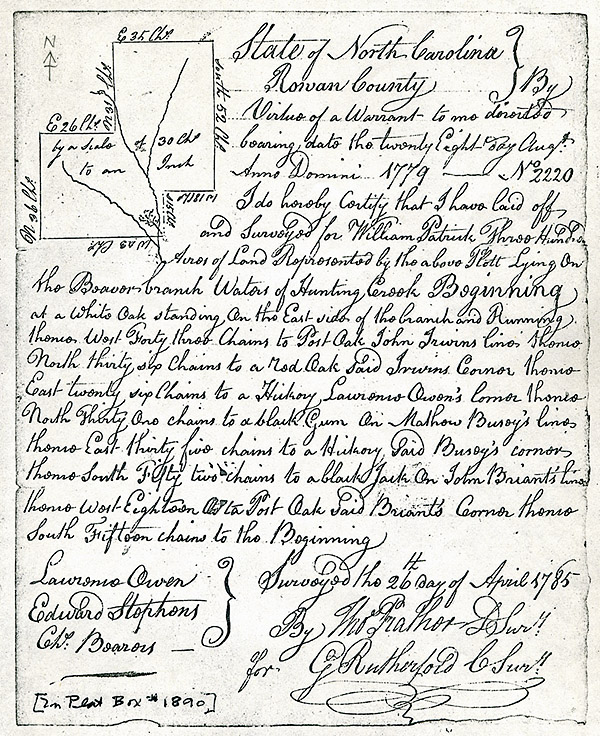 N
E 35 Chs
No 31 Chs
South 52 Chs
E 26 Chs
by a Scale of 30 Chs
to an Inch
No 36 Chs
W 18 Chs
South 15
W 43 Chs
State of North Carolina
Rowan County } By
Virtue of a Warrant to me directed
bearing date the twenty Eight day Augst
Anno Domini 1779 — No 2220
I do hereby Certify that I have laid off
and Surveyed for William Patrick Three Hundred
Acres of Land Represented by the above Plott Lying On
the Beaver branch Waters of Hunting Creek Beginning
at a White Oak standing On the East side of the branch and Running
thence West Forty three Chains to Post Oak John Irwins line thence
North thirty six Chains to a red Oak Said Irwins Corner thence
East twenty six Chains to a Hickory Lawrence Owen's corner thence
North Thirty One chains to a black Gum On Mathew Busey's line
thence East thirty five chains to a Hickory Said Busey's corner
thence South Fifty two chains to a black Jack On John Briant's line
thence West Eighteen to Post Oak Said Briants Corner thence
South Fifteen chains to the Beginning
Lawrence Owen
Edward Stephens
Chn Bearers —
Surveyed the 26th day of April 1785
By Thos Prather D Survr
for G Rutherford C Survr
[In Plat Box # 1890]